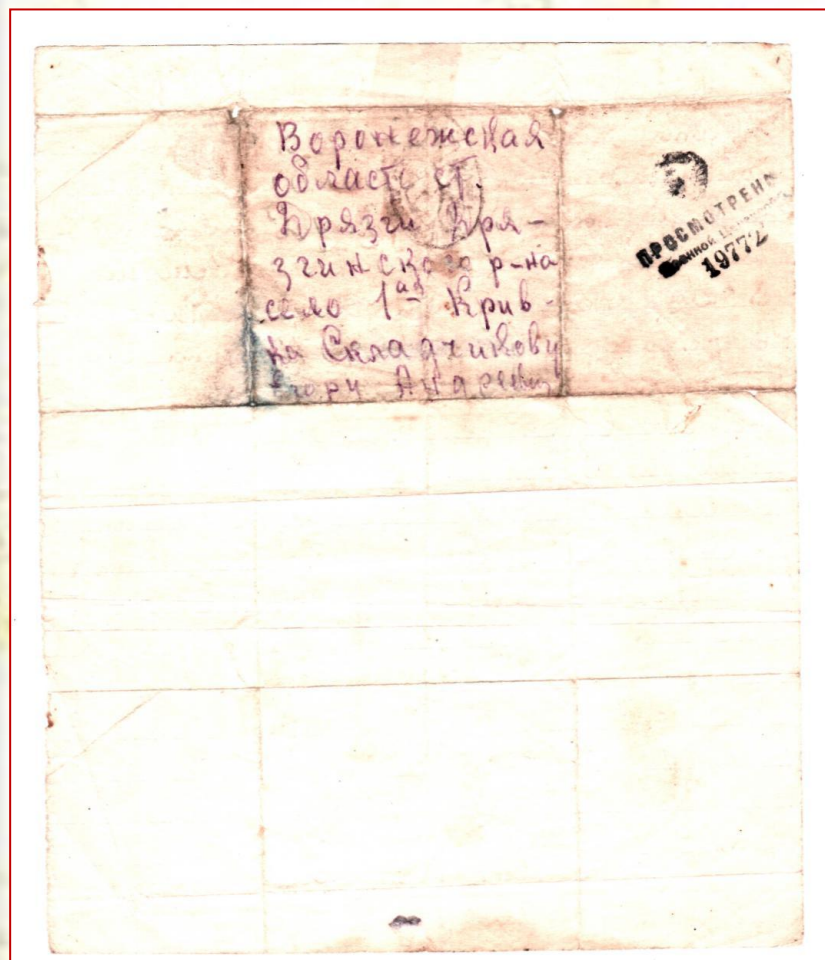 Воронежская
область ст.
Грязги Гря-
згинского р-на
село 1ая Крив-
ка Складчикову
Егору Андреевич
ПРОСМОТРЕНО
Военной Цензурой
19772